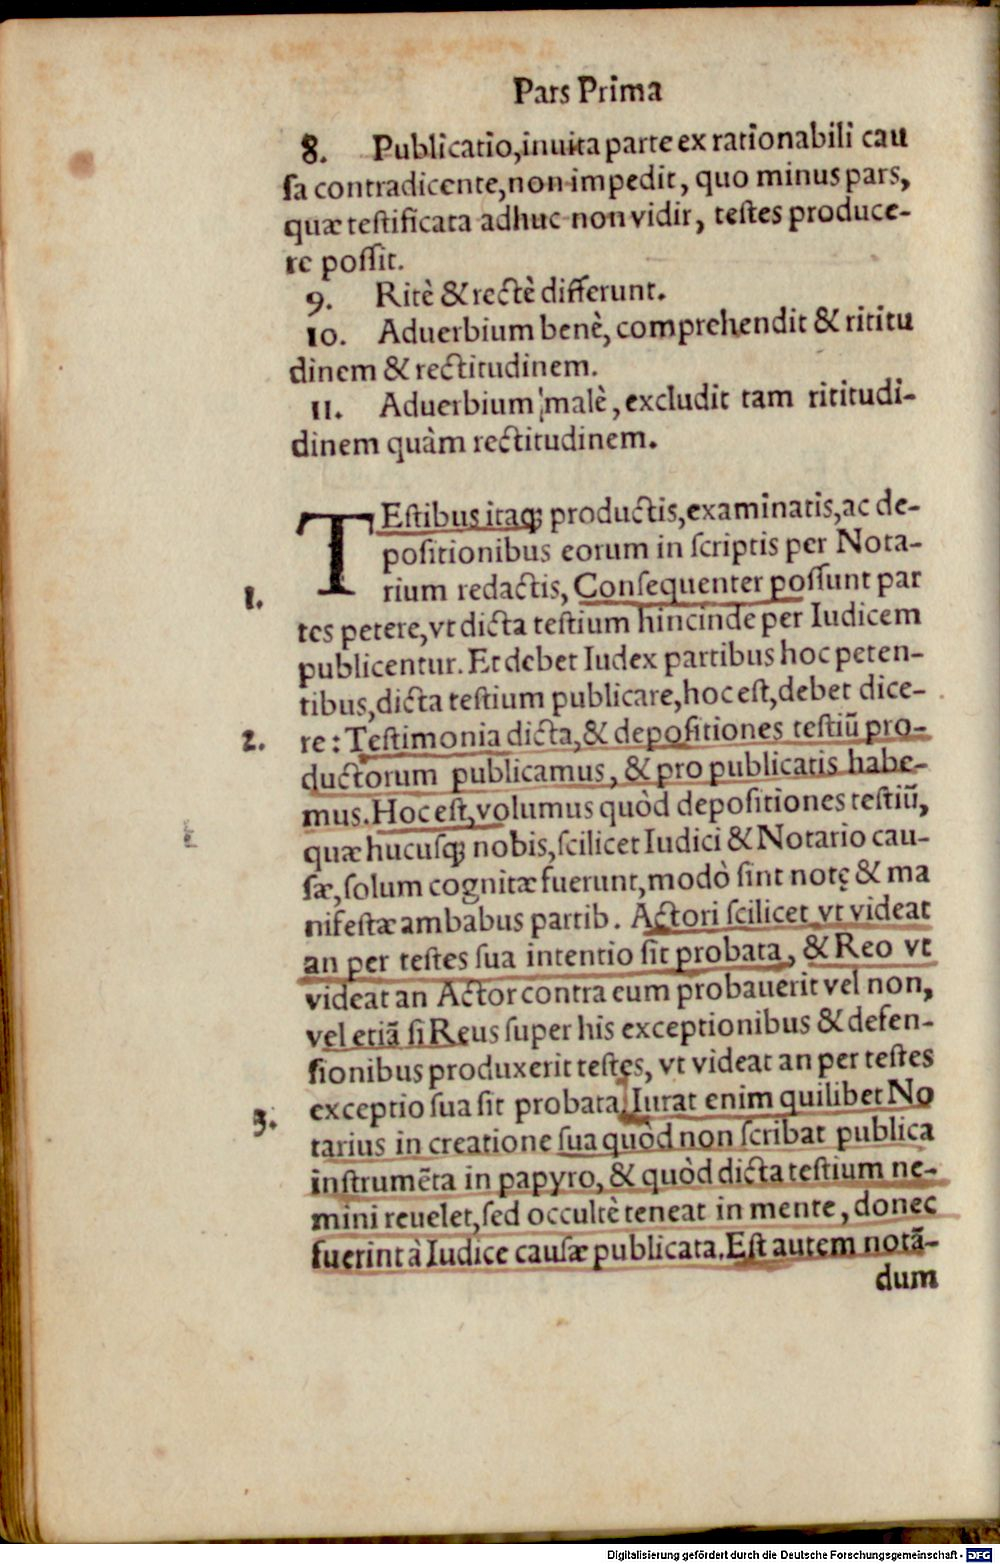 Pars Prima
8. Publicatio, inuita parte ex rationabili cau
ſa contradicente, non impedit, quo minus pars,
quæ teſtificata adhuc non vidit, teſtes produce-
re poſſit.
9. Ritè & rectè differunt.
10. Aduerbium benè, comprehendit & rititu
dinem & rectitudinem.
11. Aduerbium malè, excludit tam rititudi-
dinem quàm rectitudinem.
TEſtibus itaq; productis, examinatis, ac de-
poſitionibus eorum in ſcriptis per Nota-
rium redactis, Conſequenter poſſunt par
1.
tes petere, vt dicta teſtium hincinde per Iudicem
publicentur. Et debet Iudex partibus hoc peten-
tibus, dicta teſtium publicare, hoc eſt, debet dice-
2. re: Teſtimonia dicta, & depoſitiones teſtiū pro-
ductorum publicamus, & pro publicatis habe-
mus. Hoc eſt, volumus quòd depoſitiones teſtiū,
quæ hucuſq; nobis, ſcilicet Iudici & Notario cau-
ſæ, ſolum cognitæ fuerunt, modò ſint notę & ma
nifeſtæ ambabus partib. Actori ſcilicet vt videat
an per teſtes ſua intentio ſit probata, & Reo vt
videat an Actor contra eum probauerit vel non,
vel etiã ſi Reus ſuper his exceptionibus & defen-
ſionibus produxerit teſtes, vt videat an per teſtes
exceptio ſua ſit probata. Iurat enim quilibet No
3.
tarius in creatione ſua quòd non ſcribat publica
inſtrumẽta in papyro, & quòd dicta teſtium ne-
mini reuelet, ſed occultè teneat in mente, donec
fuerint à Iudice cauſæ publicata. Eſt autem notã-
dum
Digitalisierung gefördert durch die Deutsche Forschungsgemeinschaft - DFG